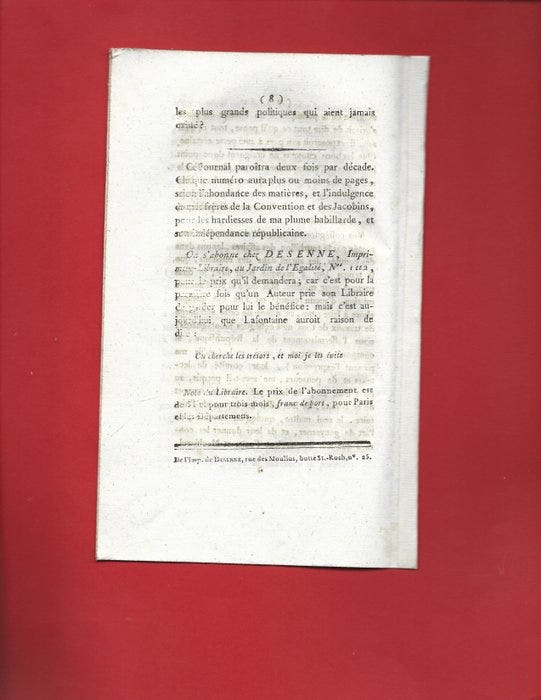 ( 8 )
les plus grands politiques qui aient jamais
existé ?
Ce Journal paroîtra deux fois par décade.
Chaque numéro aura plus ou moins de pages,
selon l'abondance des matières, et l'indulgence
de mes frères de la Convention et des Jacobins,
pour les hardiesses de ma plume babillarde, et
son indépendance républicaine.
On s'abonne chez DESENNE, Impri-
meur-Libraire, au Jardin de l'Egalité, Nos. 1 et 2,
pour le prix qu'il demandera ; car c'est pour la
première fois qu'un Auteur prie son Libraire
de garder pour lui le bénéfice : mais c'est au-
jourd'hui que Lafontaine auroit raison de
dire :
On cherche les trésors, et moi je les évite
Note du Libraire. Le prix de l'abonnement est
de 5 l. pour trois mois, franc de port, pour Paris
et les Départemens.
De l'Imp. de DESENNE, rue des Moulins, butte St.-Roch, n°. 25.